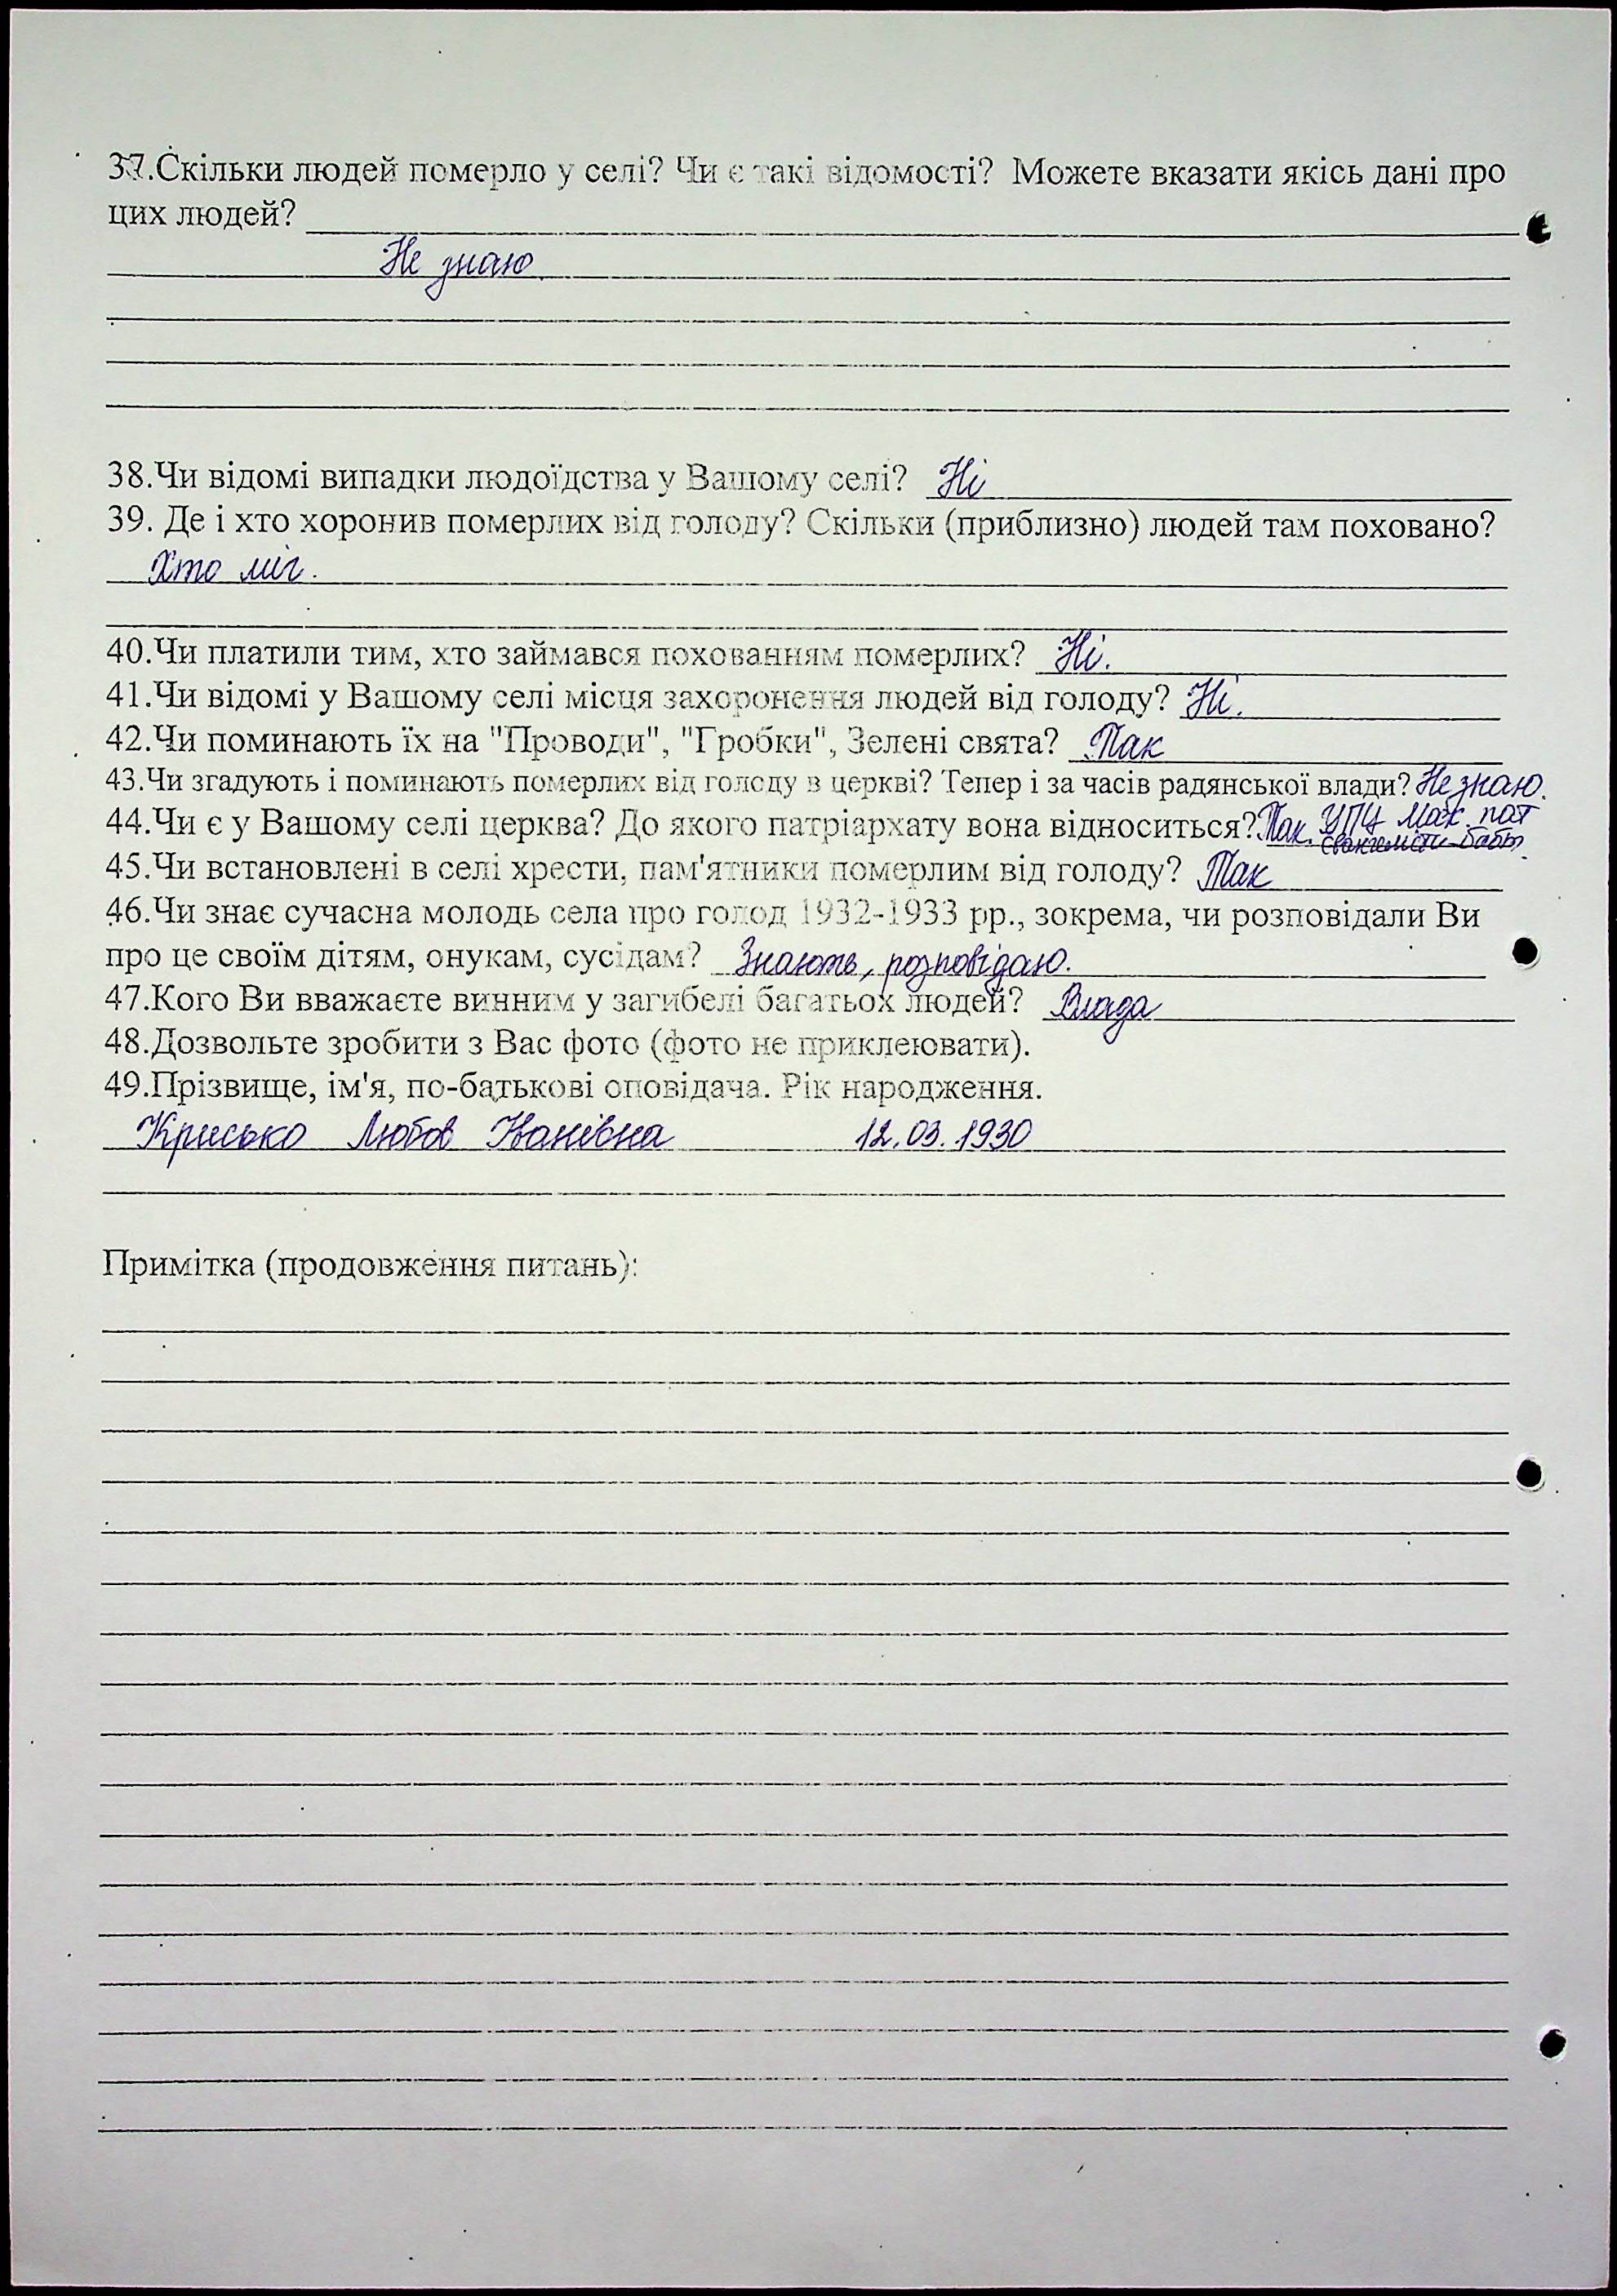 37.Скільки людей померло у селі? Чи є такі відомості? Можете вказати якісь дані про
цих людей?
Не знаю.
38.Чи відомі випадки людоїдства у Вашому селі? Ні
39. Де і хто хоронив померлих від голоду? Скільки (приблизно) людей там поховано?
Хто міг.
40.Чи платили тим, хто займався похованням померлих? Ні.
41.Чи відомі у Вашому селі місця захоронення людей від голоду? Ні.
42.Чи поминають їх на "Проводи", "Гробки", Зелені свята? Так
43.Чи згадують і поминають померлих від голоду в церкві? Тепер і за часів радянської влади? Не знаю.
44.Чи є у Вашому селі церква? До якого патріархату вона відноситься? Так. УПЦ Моск. пат
45.Чи встановлені в селі хрести, пам'ятники померлим від голоду? Так
46.Чи знає сучасна молодь села про голод 1932-1933 рр., зокрема, чи розповідали Ви
про це своїм дітям, онукам, сусідам? Знають, розповідаю.
47.Кого Ви вважаєте винним у загибелі багатьох людей? Влада
48.Дозвольте зробити з Вас фото (фото не приклеювати).
49.Прізвище, ім'я, по-батькові оповідача. Рік народження.
Крисько Любов Іванівна 12.03.1930
Примітка (продовження питань):